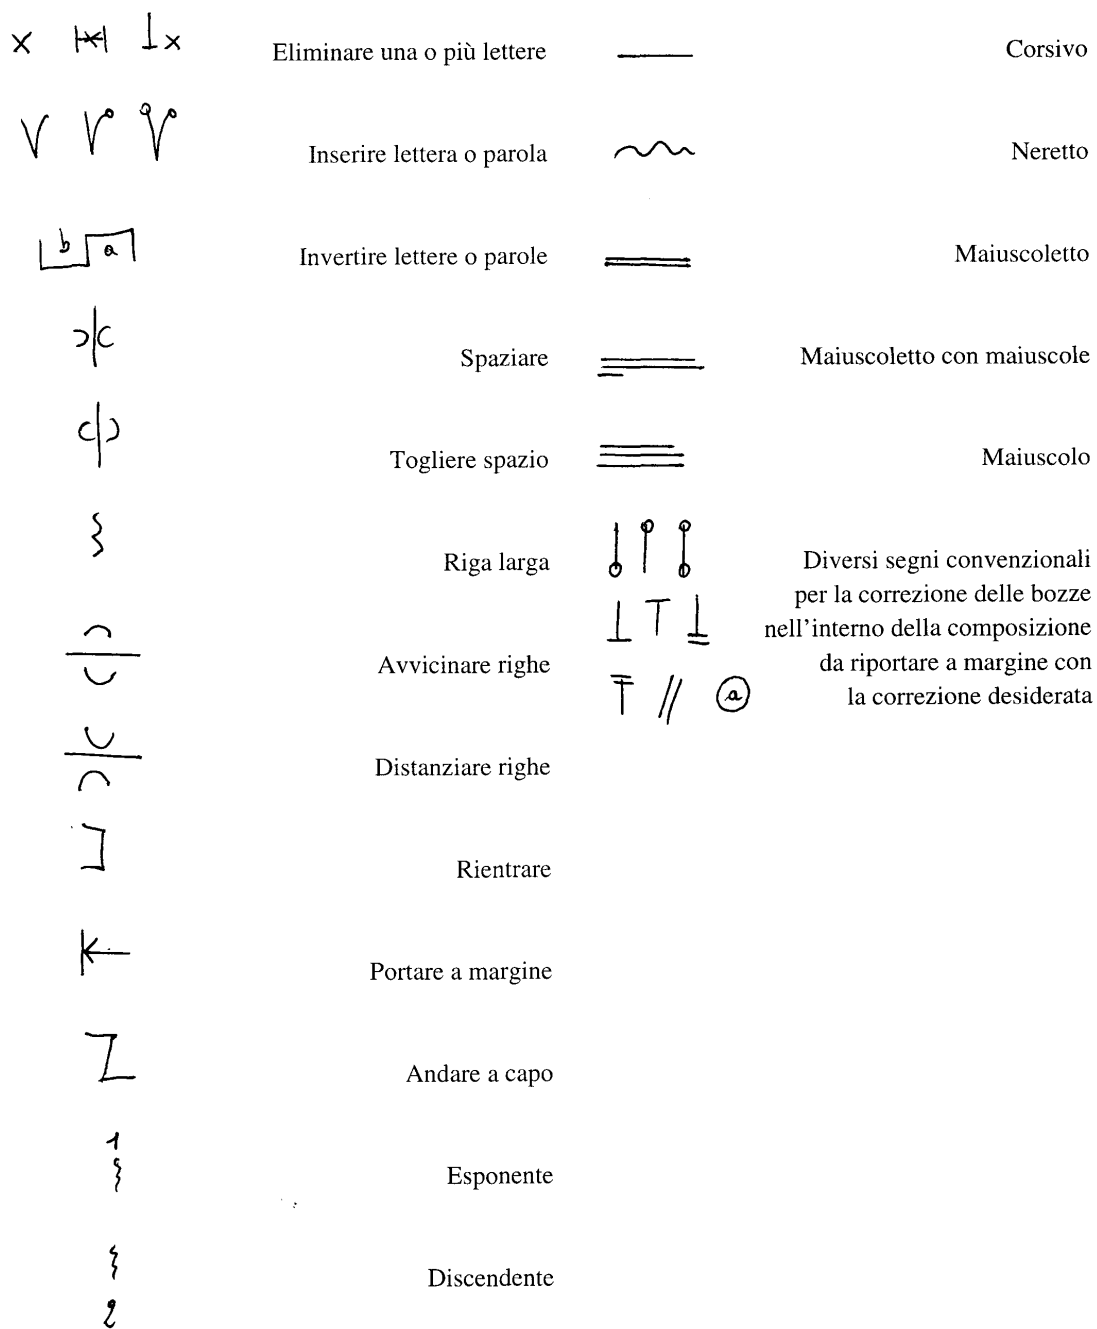 x x x
Eliminare una o più lettere
Inserire lettera o parola
b a
Invertire lettere o parole
Spaziare
Togliere spazio
Riga larga
Avvicinare righe
Distanziare righe
Rientrare
Portare a margine
Andare a capo
1
Esponente
Discendente
2
Corsivo
Neretto
Maiuscoletto
Maiuscoletto con maiuscole
Maiuscolo
Diversi segni convenzionali
per la correzione delle bozze
nell'interno della composizione
da riportare a margine con
la correzione desiderata
a